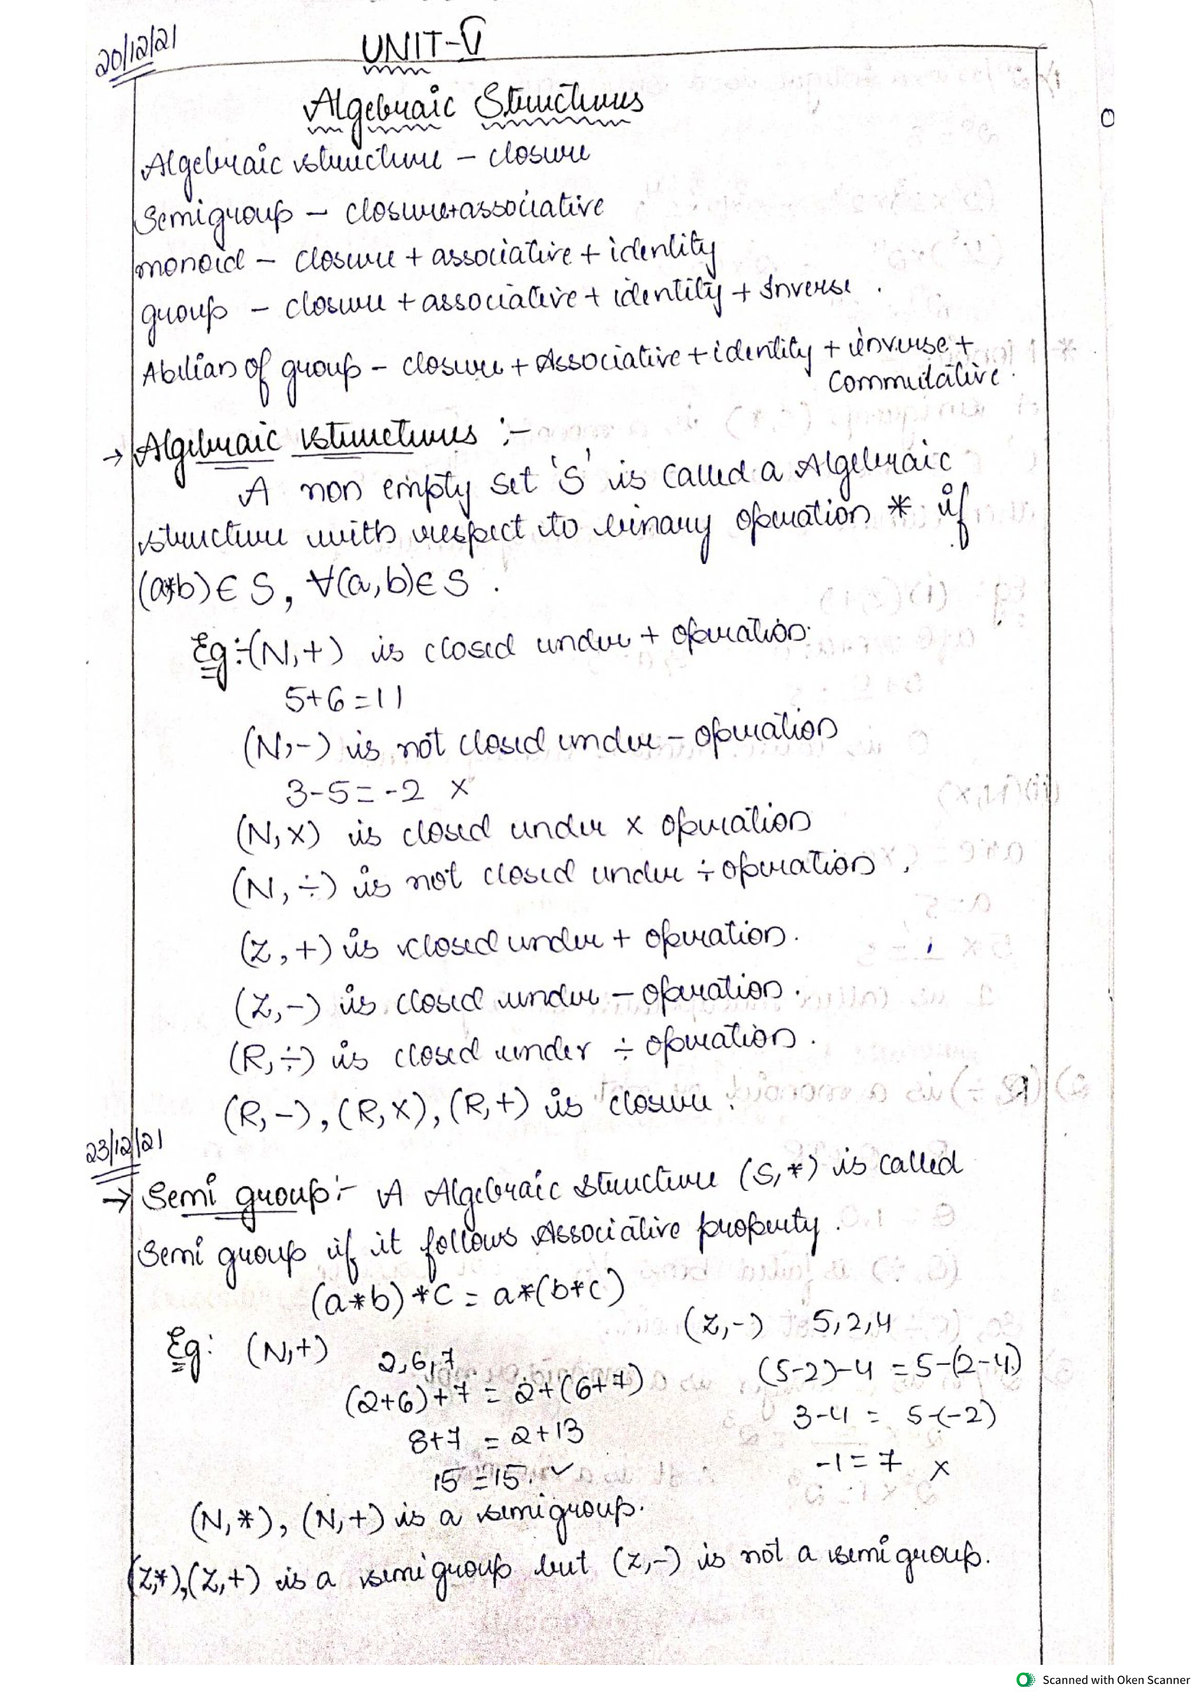 20/12/21
UNIT-V
Algebraic Structures
Algebraic structure - closure
Semigroup - closure+associative
monoid - closure + associative + identity
group - closure + associative + identity + Inverse .
Abilian of group - closure + Associative + identity + inverse +
Commutative.
→ Algebraic structures :-
A non empty set 'S' is called a Algebraic
structure with respect to binary operation * if
(a*b) ∈ S, ∀(a,b) ∈ S .
Eg:- (N,+) is closed under + operation.
5+6=11
(N,-) is not closed under - operation
3-5=-2 x
(N,x) is closed under x operation
(N,÷) is not closed under ÷ operation .
(Z,+) is closed under + operation.
(Z,-) is closed under - operation.
(R,÷) is closed under ÷ operation.
(R,-), (R,x), (R,+) is closure.
23/12/21
→ Semi group:- A Algebraic structure (S,*) is called
Semi group if it follows Associative property.
(a*b)*c = a*(b*c)
Eg: (N,+)
2,6,7
(2+6)+7 = 2+(6+7)
8+7 = 2+13
15=15. ✓
(Z,-) 5,2,4
(5-2)-4 = 5-(2-4)
3-4 = 5-(-2)
-1=7 x
(N,*), (N,+) is a semigroup.
(Z,*),(Z,+) is a semigroup but (Z,-) is not a semigroup.
Scanned with Oken Scanner